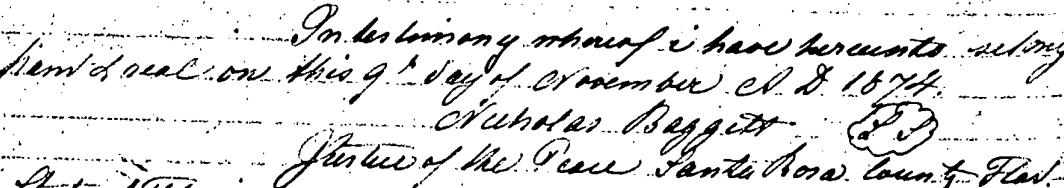 In testimony whereof i have hereunto set my
hand & seal on this 9th day of November A D 1874.
Nicholas Baggett
Justice of the Peace Santa Rosa County Fla